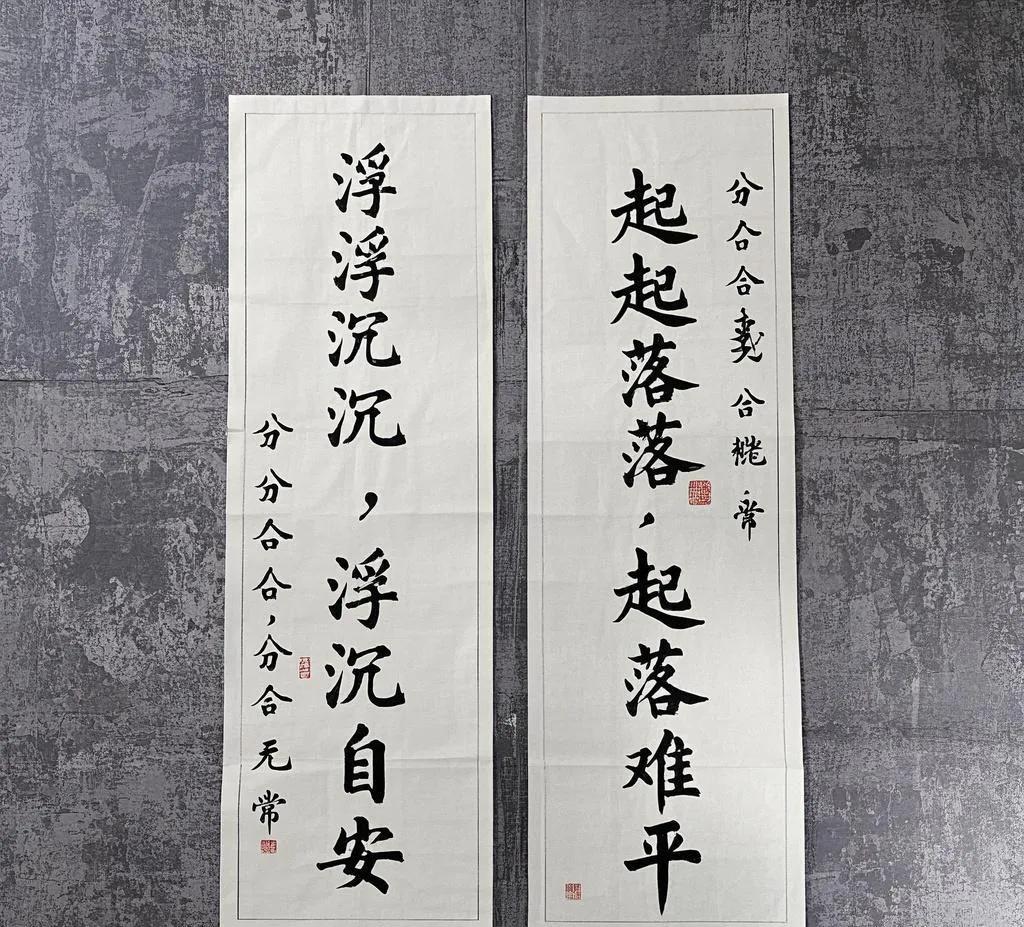 分合合合
起起落落，起落难平
浮浮沉沉，浮沉自安
分分合合，分合无常